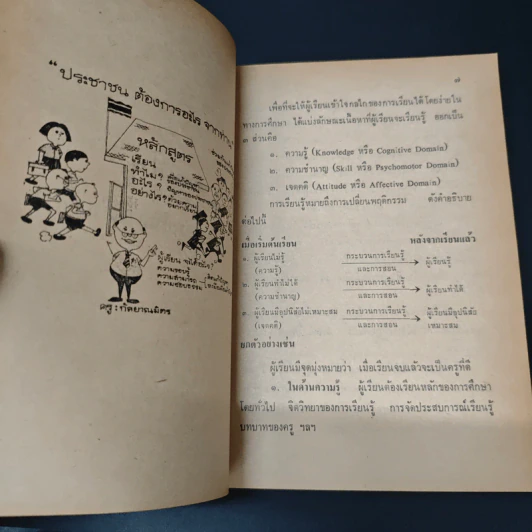 "ประชาชน ต้องการอะไร จากท่าน
หลักสูตร
เรียน
ทำไม?
อะไร?
อย่างไร?
ผู้เรียน จะได้อะไร?
ความรอบรู้
ความสามารถ
ความชอบธรรม
ครู : กัลยาณมิตร
๗
เพื่อที่จะให้ผู้เรียนเข้าใจกลไกของการเรียนได้โดยง่ายใน
ทางการศึกษา ได้แบ่งลักษณะเนื้อหาที่ผู้เรียนจะเรียนรู้ ออกเป็น
๓ ส่วนคือ
๑. ความรู้ (Knowledge หรือ Cognitive Domain)
๒. ความชำนาญ (Skill หรือ Psychomotor Domain)
๓. เจตคติ (Attitude หรือ Affective Domain)
การเรียนรู้หมายถึงการเปลี่ยนพฤติกรรม ดังคำอธิบาย
ต่อไปนี้
เมื่อเริ่มต้นเรียน หลังจากเรียนแล้ว
๑. ผู้เรียนไม่รู้ กระบวนการเรียนรู้ ผู้เรียนรู้
(ความรู้) และการสอน
๒. ผู้เรียนทำไม่ได้ กระบวนการเรียนรู้ ผู้เรียนทำได้
(ความชำนาญ) และการสอน
๓. ผู้เรียนมีอุปนิสัยไม่เหมาะสม กระบวนการเรียนรู้ ผู้เรียนมีอุปนิสัย
(เจตคติ) และการสอน เหมาะสม
ยกตัวอย่างเช่น
ผู้เรียนมีจุดมุ่งหมายว่า เมื่อเรียนจบแล้วจะเป็นครูที่ดี
๑. ในด้านความรู้ ผู้เรียนต้องเรียนหลักของการศึกษา
โดยทั่วไป จิตวิทยาของการเรียนรู้ การจัดประสบการณ์เรียนรู้
บทบาทของครู ฯลฯ